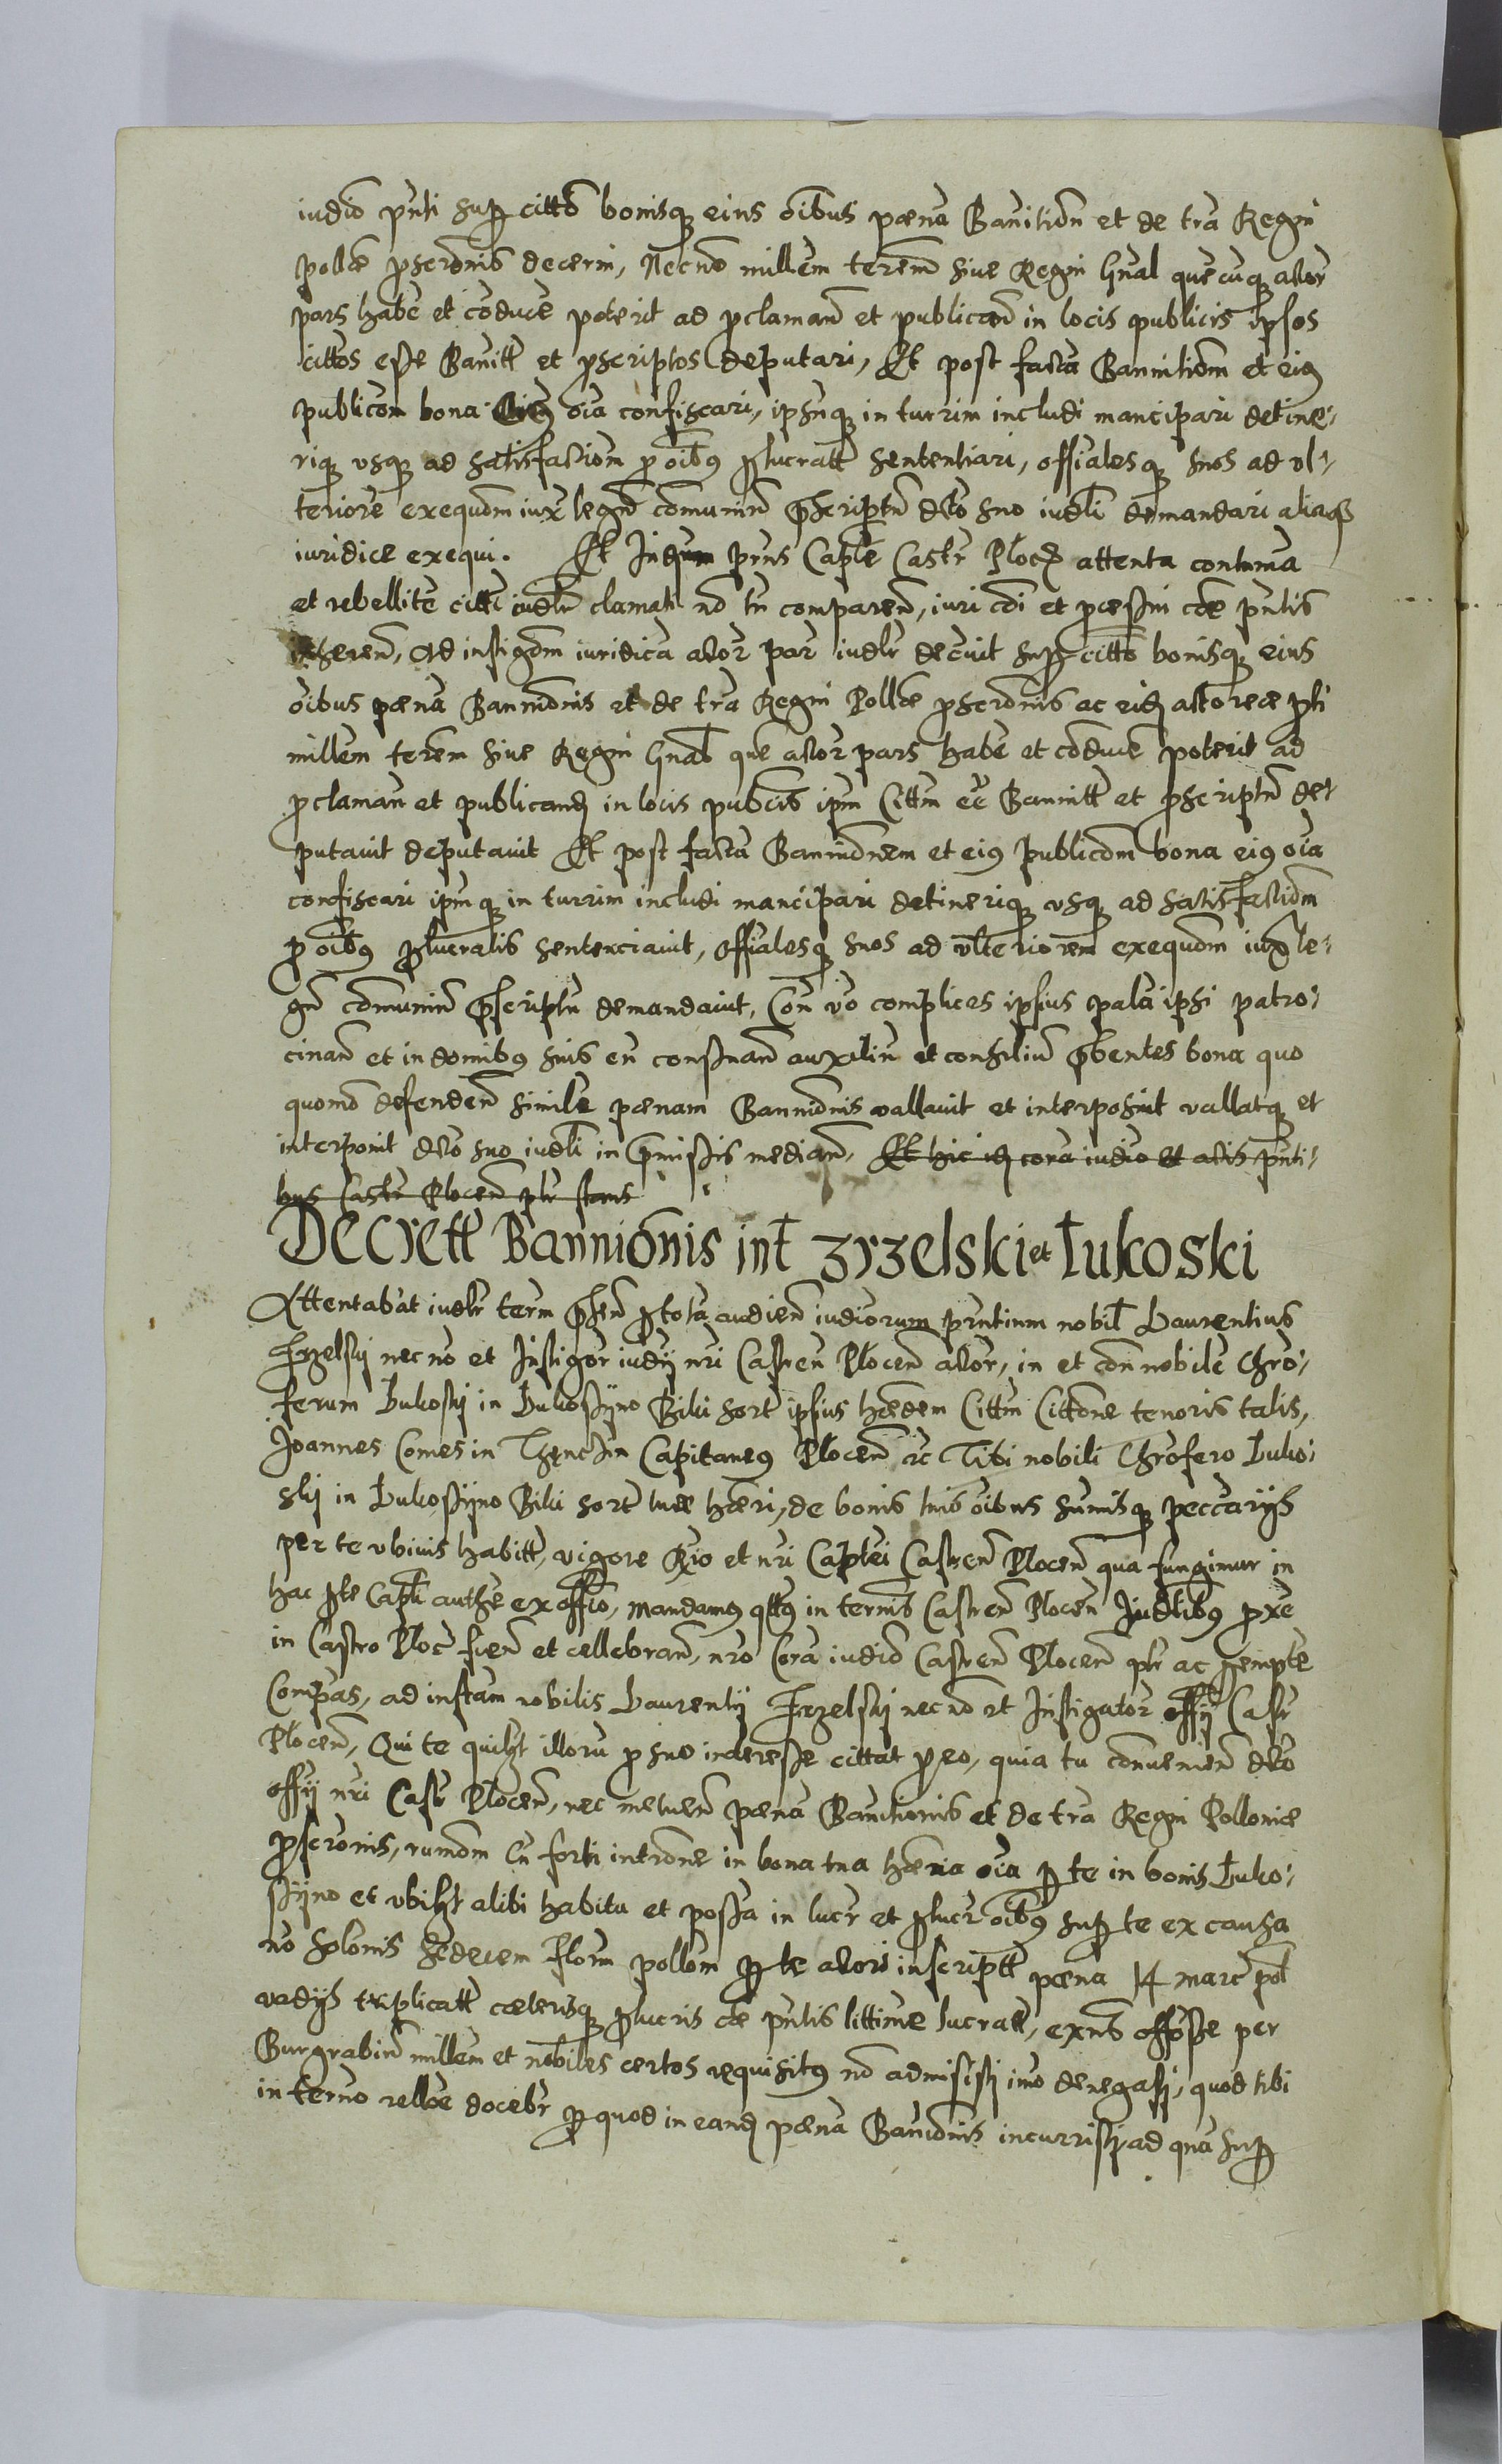 iudio pnti sup citto bonisq eius oibus paena Banition et de tra Regni
pollae pscronis decerni, Necno millem terem siue Regni Gnal quecuq actor
pars habe et coduce poterit ad pclaman et publican in locis publicis ipsos
cittos esse Banitt et pscriptos deputari, Et post facta Bannitiom et eiq
publicom bona oia confiscari, ipsuq in turrim includi mancipari detine-
riq vsq ad satisfactiom p oibq plucratt sententiari, offialesq suos ad vl-
teriore exequom iux legu comuniu pscriptu dcto suo iudli demandari aliaq
iuridice exequi. Et Iudm pns Caple Castr Plocen attenta contuma
et rebellite citti iudlr clamati no tn comparen, iuri cdi et paessm cde pntis
Ad instigom iuridica actor par iudlr decuit sup citto bonisq eius
oibus paena Banniōnis et de tra Regni Pollae pscronis ac eid actoreae pti
millem terem siue Regni Gnal que actor pars habe et coduce poterit ad
pclaman et publicand in locis publcis ipm Cittm ee Bannitt et pscriptu de-
putauit deputauit Et post facta Banniōnem et eiq publicom bona eiq oia
confiscari ipmq in turrim includi mancipari detineriq vsq ad satisfactiom
p oibq plucratis sentenciauit, offialesq suos ad vlteriorem exequom iux le-
gu comuniu pscriptu demandauit, Con vo complices ipsius pala ipsi patro-
cinan et in domibq suis eu consuan auxiliu et consiliu pbentes bona quo
quomo defenden simile paenam Banniōnis vallauit et interposuit vallatq et
interponit dcto suo iudli in pmissis median, Et hic id cora iudio et actis pnti-
bus Castr Plocen plr stans
Decrett Banniōnis int Zrzelski et Łukoski
Attentabat iudlr term phen p tota audien iudiorum pntium nobil Laurentius
Zrzelski necno et Instigor iudij nri Castren Plocen actor, in et con nobile Chro-
ferum Lukoski in Lukossijno Biki sort ipsius haedem Cittm Cittone tenoris talis,
Joannes Comes in Thenczin Capitaneq Plocen etc Tibi nobili Chrofero Luko-
ski in Lukossijno Biki sort tuae haeri, de bonis tuis oibus sumisq peccarijs
per te vbiuis habitt, vigore Rio et nri Captei Castren Plocen qua fungimur in
hac pte Capli authe ex offio, mandamq qttq in ternis Castren Plocen Iudlibq pxe
in Castro Ploc fien et cellebran, nro Cora iudio Castren Plocen plr ac pempte
Compas, ad instam nobilis Laurentij Zrzelski necno et Instigator offij Castr
Plocen, Qui te quilzt illoru p suo interesse cittat p eo, quia tu conuenien dcto
offij nri Castr Plocen, nec metuen paena Banitionis et de tra Regni Polloniae
pscronis, rumom cu forti introne in bona tua haeria oia p te in bonis Luko-
ssijno et vbilzt alibi habita et possa in lucr et plucr oibq sup te ex causa
no solonis sedecem Florm pollom p te actori inscriptt paena 14 marc pol
vadijs triplicatt caeterisq plucris cde pntis littime lucratt, exns offosse per
Burgrabiu millem et nobiles certos requisitq no admisisti imo denegasti, quod tibi
in terno rellue docebr p quod in eand paena Baniōnis incurristi, ad qua sup